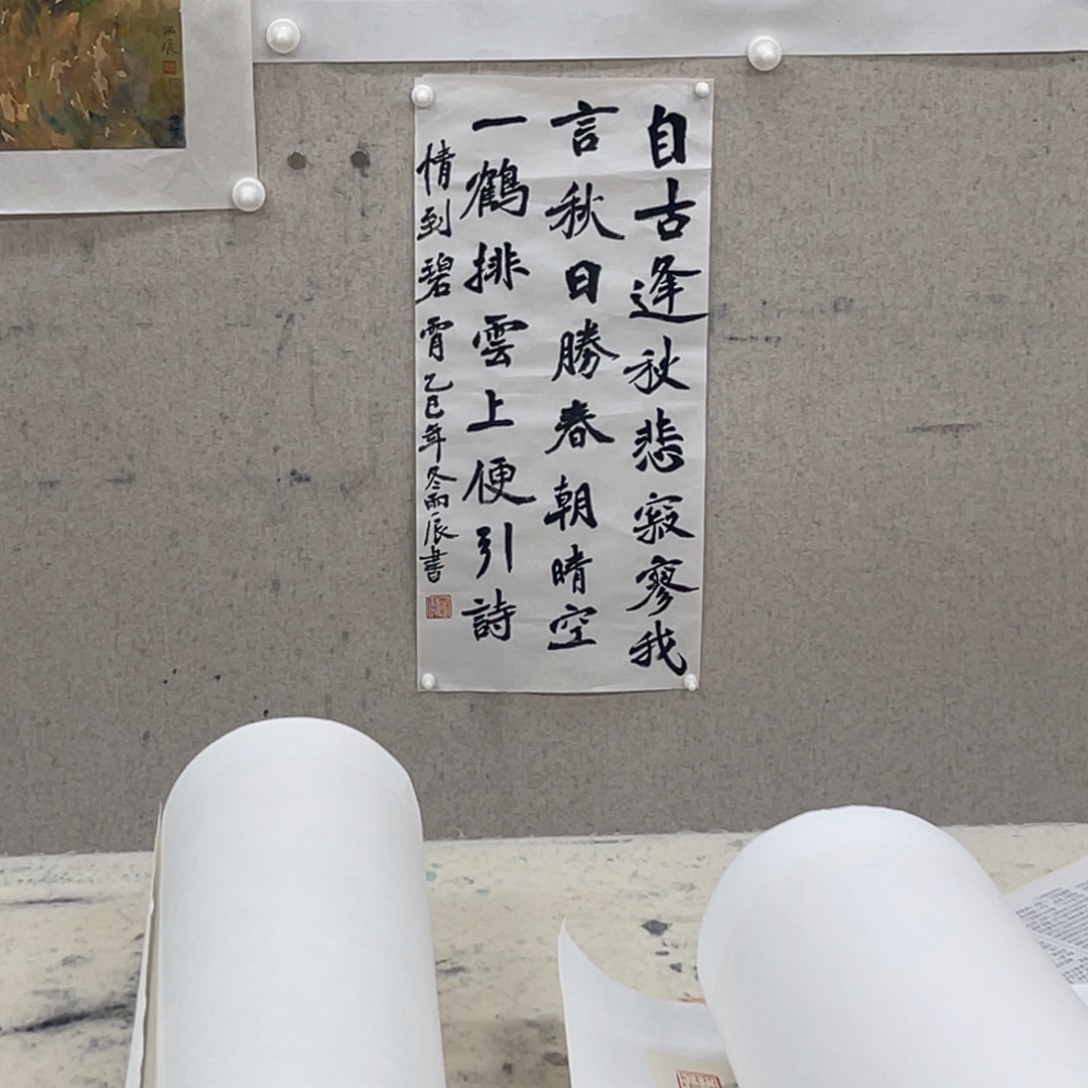 自古逢秋悲寂寥我
言秋日勝春朝晴空
一鶴排雲上便引詩
情到碧霄乙巳年冬雨辰書